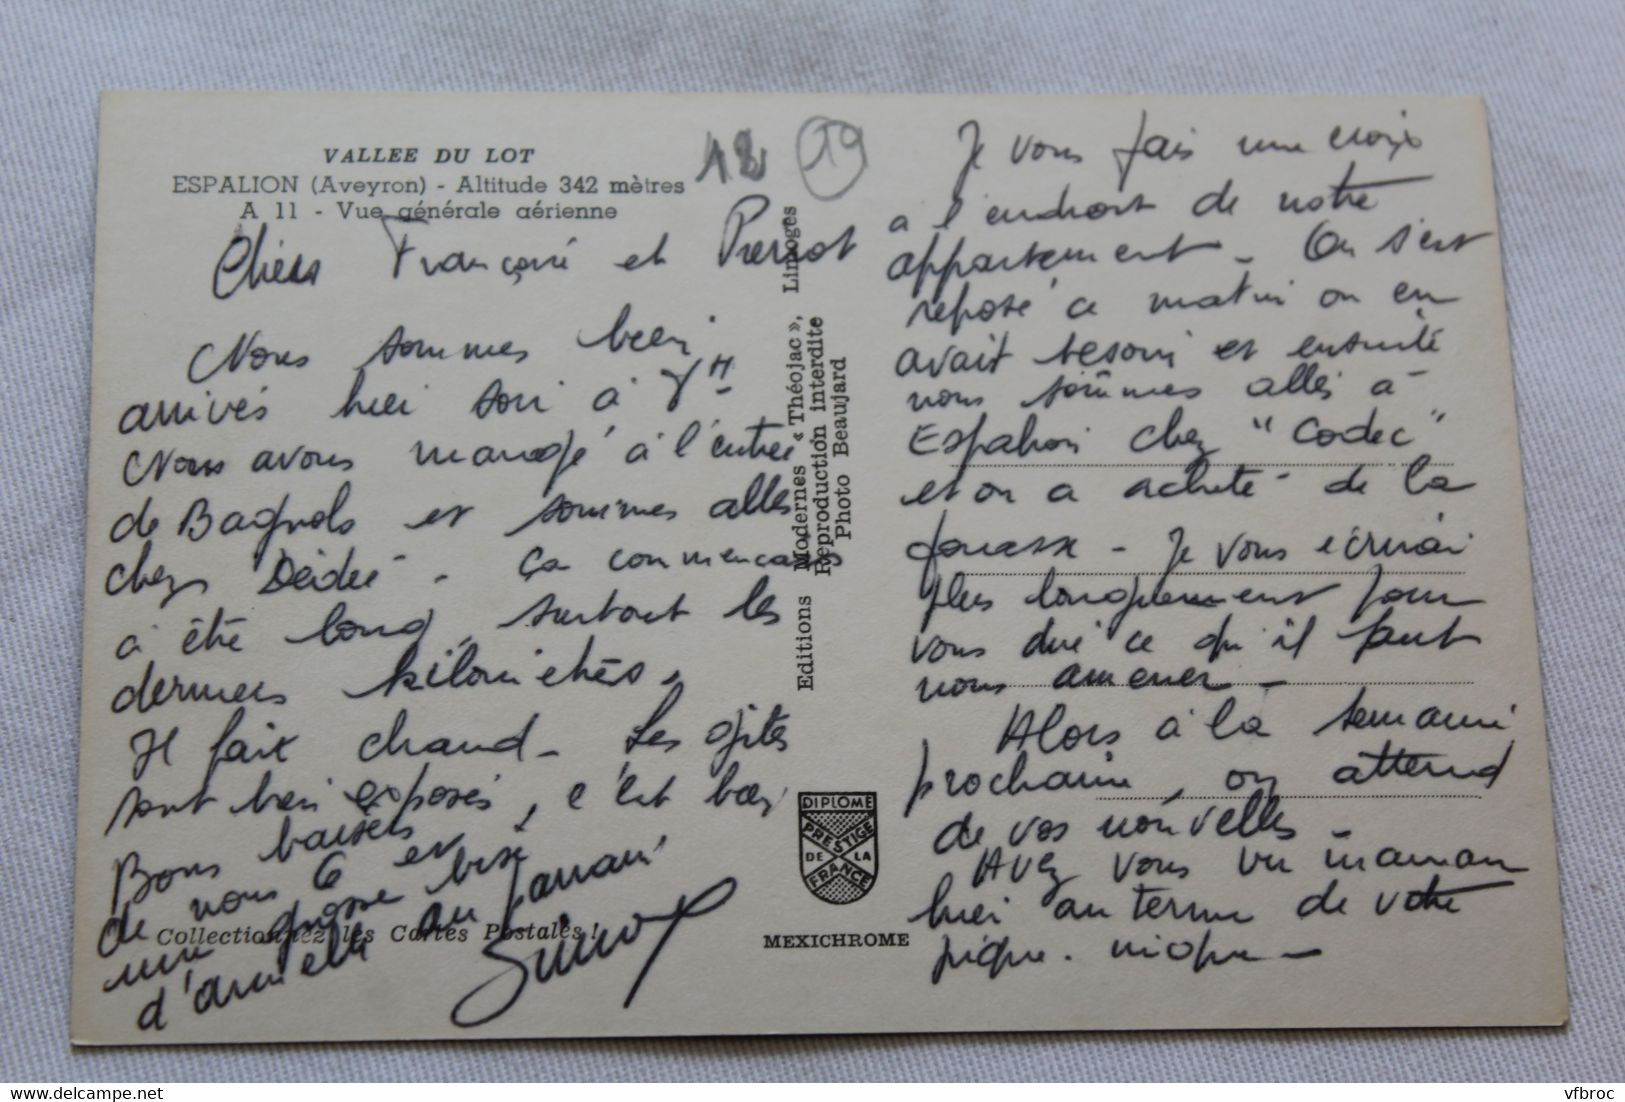 VALLEE DU LOT
ESPALION (Aveyron) - Altitude 342 mètres
A 11 - Vue générale aérienne
12 19
Chers Françoise et Pierrot
Nous sommes bien
arrivés hier soir à 7H
Nous avons mangé à l'entrée
de Bagnols et sommes allés
chez Dédée - Ça commençait
à être long, surtout les
derniers kilomètres.
Il fait chaud - Les gîtes
sont bien exposés, c'est
Bons baisers
de nous 6 et
une grosse bise
d'Armelle au
Simof
Collectionnez les Cartes Postales !
Editions Modernes « Théojac », Limoges
Reproduction interdite
Photo Beaujard
DIPLOME
PRESTIGE
DE LA
FRANCE
MEXICHROME
Je vous fais une croix
a l'endroit de notre
appartement - On s'est
reposé ce matin on en
avait besoin et ensuite
nous sommes allés à
Espalion chez "Codec"
et on a acheté de la
fouasse - Je vous écrirai
plus longuement pour
vous dire ce qu'il faut
nous amener -
Alors à la semaine
prochaine, on attend
de vos nouvelles -
Avez vous vu maman
hier au terme de votre
pique-nique -